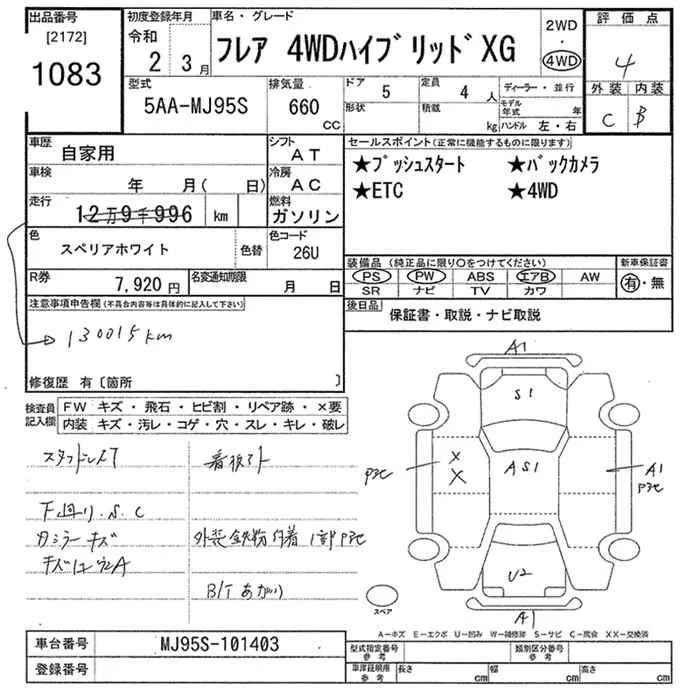 出品番号
[2172]
1083
初度登録年月
令和
2 3月
車名・グレード
フレア 4WDハイブリッドXG
2WD
・
4WD
評価点
4
外装 内装
C B
型式
5AA-MJ95S
排気量
660
CC
ドア
5
定員
4 人
形状
積載
kg
ディーラー・並行
モデル年式 年
ハンドル 左・右
車歴
自家用
シフト
AT
車検
年 月( 日)
冷房
AC
走行
12万9千996 km
燃料
ガソリン
色
スペリアホワイト
色替
色コード
26U
R券
7,920円
名変通知期限
月 日
セールスポイント(正常に機能するものに限ります)
★プッシュスタート ★バックカメラ
★ETC ★4WD
装備品(純正品に限り○をつけてください)
新車保証書
PS PW ABS エアB AW
SR ナビ TV カワ
有・無
後日品
保証書・取説・ナビ取説
注意事項申告欄(不具合内容等は具体的に記入して下さい)
130015km
修復歴 有〔箇所 〕
検査員記入欄
FW キズ・飛石・ヒビ割・リペア跡・×要
内装 キズ・汚レ・コゲ・穴・スレ・キレ・破レ
スタッドレス7
下廻り.S.C
カミラーキズ
外装鉄粉付着 1部Pアセ
B/Tあがり
A1
S1
AS1
Pアセ
X
X
A1
Pアセ
U2
A1
スペア
A−キズ E−エクボ U−凹み W−補修跡 S−サビ C−腐食 XX−交換済
車台番号
MJ95S-101403
登録番号
型式指定番号
参考
類別区分番号
参考
車庫証明用
参考
長さ
cm
幅
cm
高さ
cm